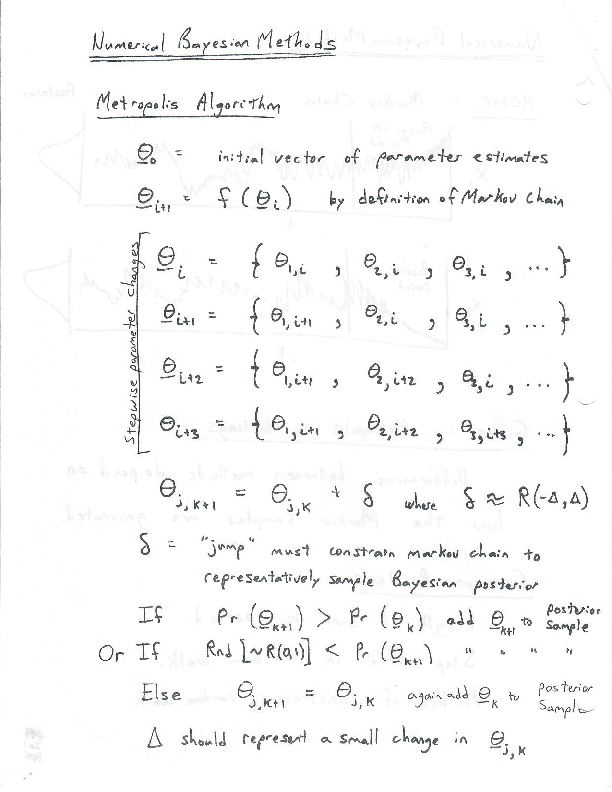 Numerical Bayesian Methods
Metropolis Algorithm
Θ₀ = initial vector of parameter estimates
Θᵢ₊₁ = f(Θᵢ) by definition of Markov Chain
Stepwise parameter changes
Θᵢ = { Θ₁,ᵢ , Θ₂,ᵢ , Θ₃,ᵢ , ... }
Θᵢ₊₁ = { Θ₁,ᵢ₊₁ , Θ₂,ᵢ , Θ₃,ᵢ , ... }
Θᵢ₊₂ = { Θ₁,ᵢ₊₁ , Θ₂,ᵢ₊₂ , Θ₃,ᵢ , ... }
Θᵢ₊₃ = { Θ₁,ᵢ₊₁ , Θ₂,ᵢ₊₂ , Θ₃,ᵢ₊₃ , ... }
Θj,k+1 = Θj,k + δ where δ ≈ R(-Δ,Δ)
δ = "jump" must constrain markov chain to
representatively sample Bayesian posterior
If Pr(Θk+1) > Pr(Θk) add Θk+1 to posterior sample
Or If Rnd [~R(0,1)] < Pr(Θk+1) " " " "
Else Θj,k+1 = Θj,k again add Θk to posterior sample
Δ should represent a small change in Θj,k